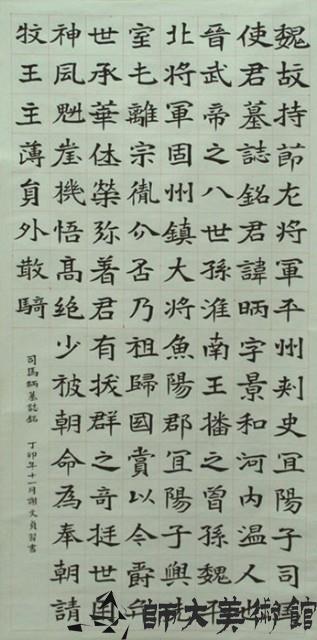 魏故持節左将軍平州刾史冝陽子司
使君墓誌銘君諱昞字景和河内温人也
晉武帝之八世孫淮南王播之曾孫魏
北将軍固州鎮大将魚陽郡冝陽子興
室乇離宗胤分否乃祖歸國賞以今爵
世承華休榮弥着君有拔群之奇挺世
神風魁崖機悟髙绝少被朝命為奉朝請
牧王主薄員外散騎
司馬昞墓誌銘 丁卯年十一月謝文貞習書
師大美術館